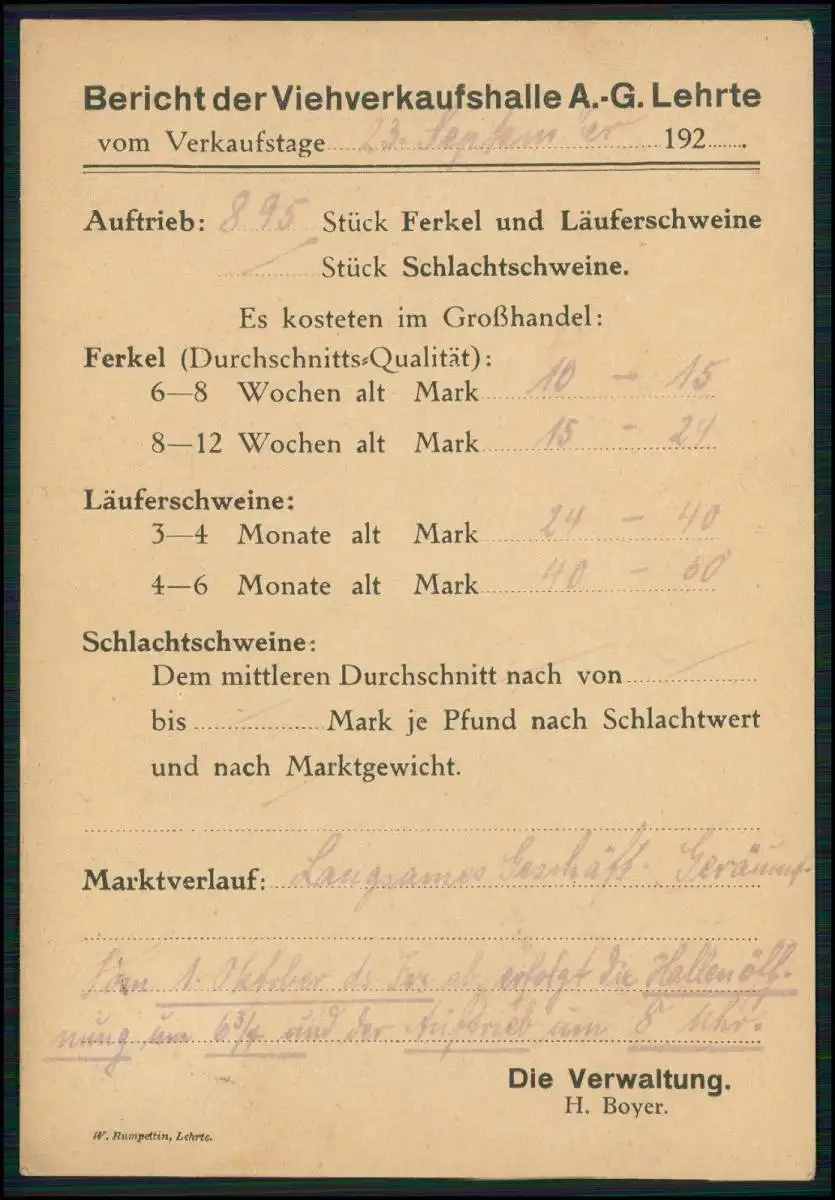 Bericht der Viehverkaufshalle A.-G. Lehrte
vom Verkaufstage 23. September 192
Auftrieb: 895 Stück Ferkel und Läuferschweine
Stück Schlachtschweine.
Es kosteten im Großhandel:
Ferkel (Durchschnitts-Qualität):
6—8 Wochen alt Mark 10 - 15
8—12 Wochen alt Mark 15 - 24
Läuferschweine:
3—4 Monate alt Mark 24 - 40
4—6 Monate alt Mark 40 - 60
Schlachtschweine:
Dem mittleren Durchschnitt nach von
bis Mark je Pfund nach Schlachtwert
und nach Marktgewicht.
Marktverlauf: Langsames Geschäft. Geräumt.
Vom 1. Oktober ds Jrs ab erfolgt die Hallenöff-
nung um 6¾ und der Auftrieb um 8 Uhr.
Die Verwaltung.
H. Boyer.
W. Rumpeltin, Lehrte.